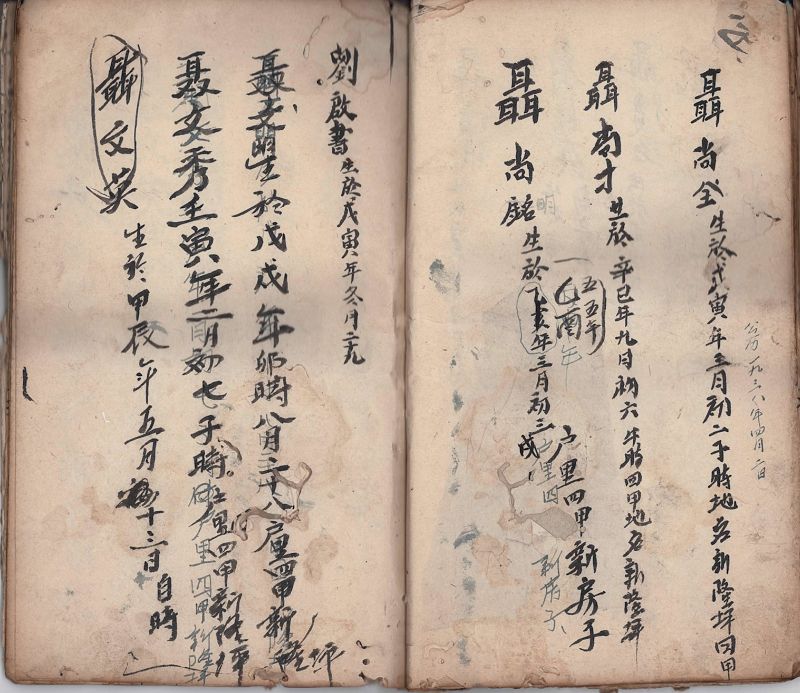 聶尚全生於戊寅年三月初二子時地名新隆坪四甲
公历一九三八年四月二日
聶尚才生於辛巳年九月初六午時四甲地名新隆坪
聶尚銘生於乙亥年三月初三戌
明
一乙酉年
五五年
户里四甲新房子
户里四
新房子
劉啟書生於戊寅年冬月二九
聶文明生於戊戌年卯時八月二十八户里四甲新隆坪
聶文秀壬寅年二月初七子時户里四甲新隆坪
户里四甲新隆坪
聶文英生於甲辰年五月十三日自時